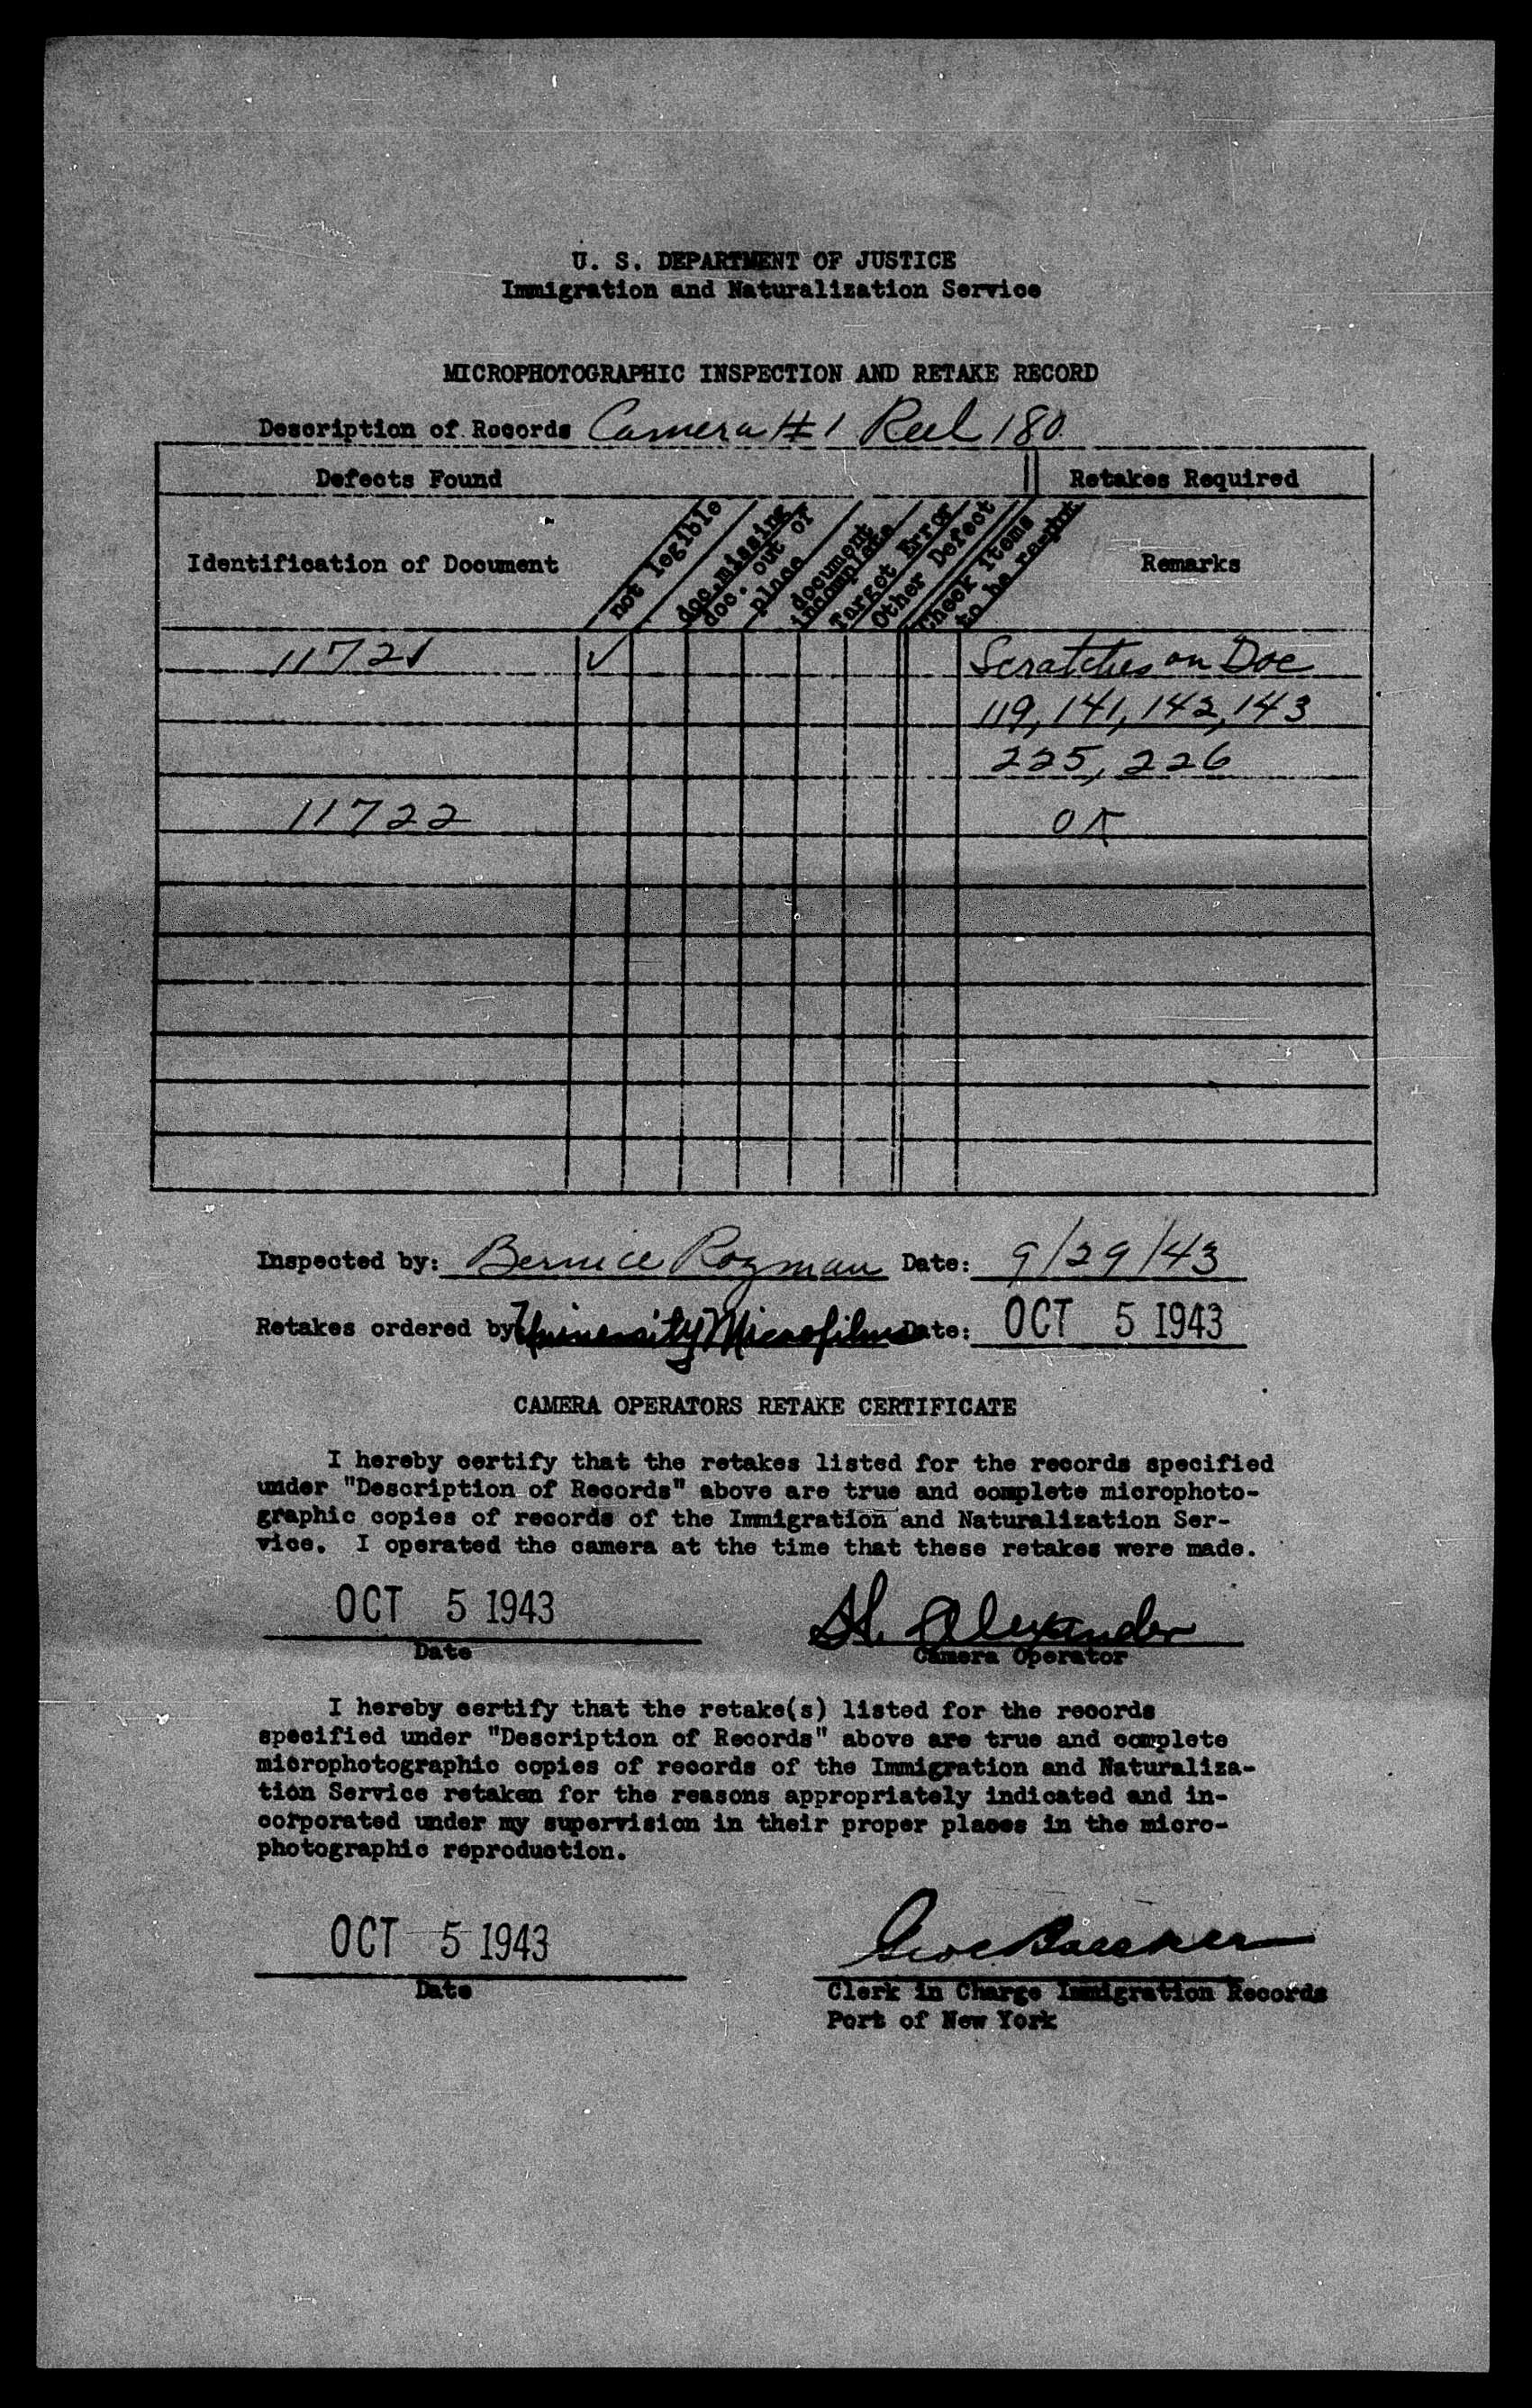 U. S. DEPARTMENT OF JUSTICE
Immigration and Naturalization Service
MICROPHOTOGRAPHIC INSPECTION AND RETAKE RECORD
Description of Records Camera # 1 Reel 180
Defects Found
Retakes Required
Identification of Document
not legible
doc. missing
doc. out of
place
document
incomplete
Target Error
Other Defect
Check Items
to be re-pht
Remarks
11721 ✓ Scratches on Doc
119, 141, 142, 143
225, 226
11722 OK
Inspected by: Bernice Rozman Date: 9/29/43
Retakes ordered by University Microfilms Date: OCT 5 1943
CAMERA OPERATORS RETAKE CERTIFICATE
I hereby certify that the retakes listed for the records specified
under "Description of Records" above are true and complete microphoto-
graphic copies of records of the Immigration and Naturalization Ser-
vice. I operated the camera at the time that these retakes were made.
OCT 5 1943 H. Alexander
Date Camera Operator
I hereby certify that the retake(s) listed for the records
specified under "Description of Records" above are true and complete
microphotographic copies of records of the Immigration and Naturaliza-
tion Service retaken for the reasons appropriately indicated and in-
corporated under my supervision in their proper places in the micro-
photographic reproduction.
OCT 5 1943 Geo
Date Clerk in Charge Immigration Records
Port of New York